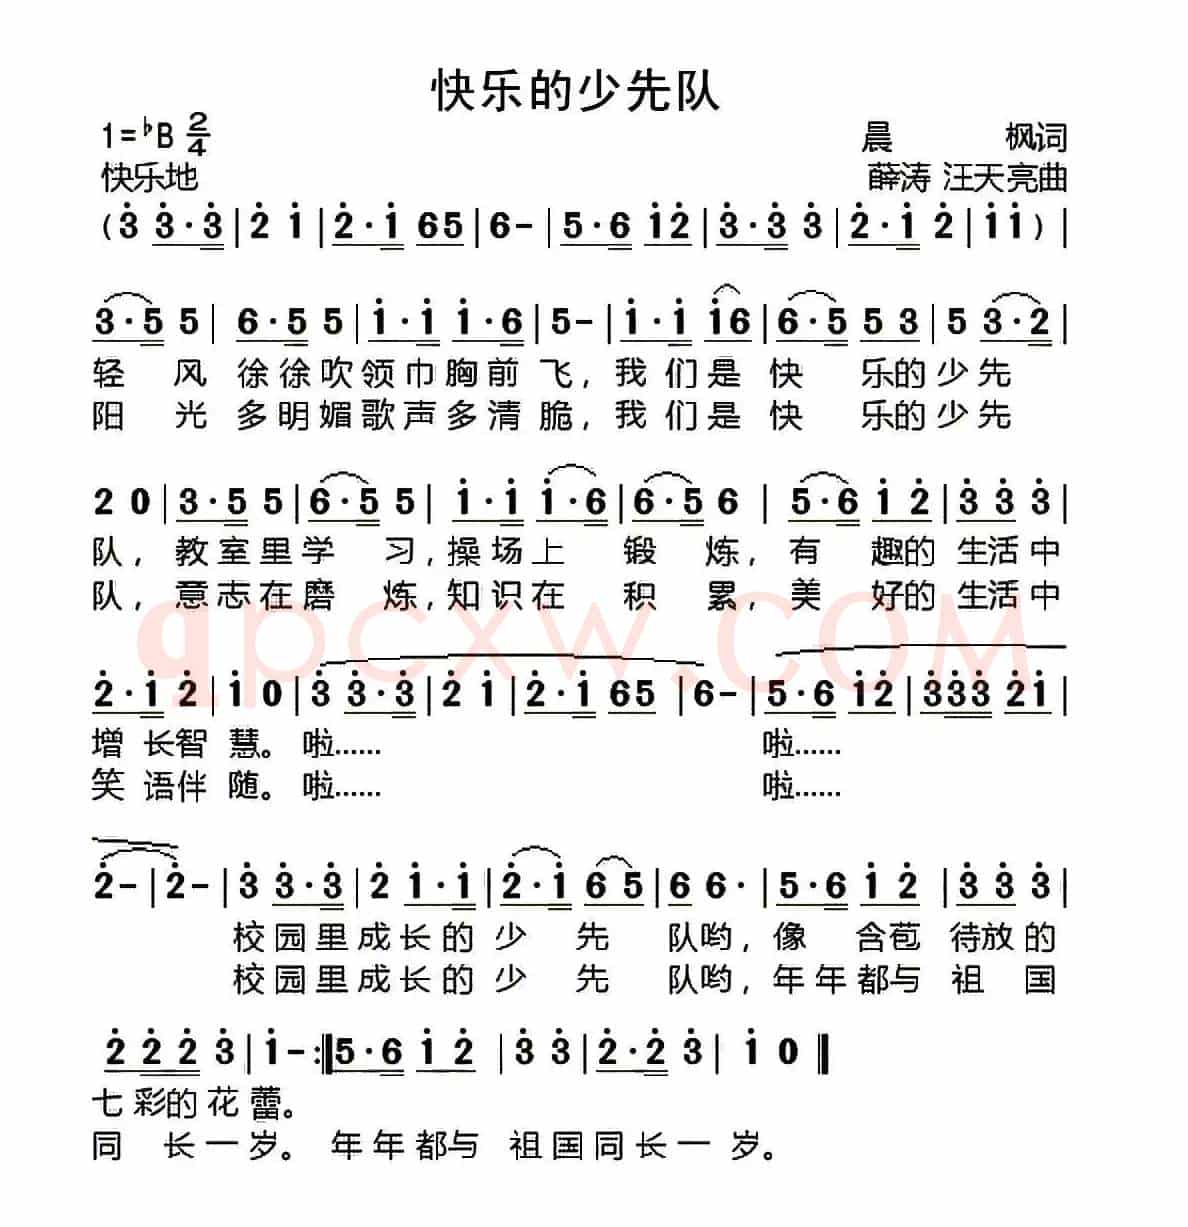 快乐的少先队
1=♭B 2/4
晨 枫词
快乐地
薛涛 汪天亮曲
(3̇ 3̇·3̇|2̇ 1̇|2̇·1̇ 65|6-|5·6 1̇2̇|3̇·3̇ 3̇|2̇·1̇ 2̇|1̇1̇)|
3·5 5|6·5 5|1̇·1̇ 1̇·6|5-|1̇·1̇ 1̇6|6·5 53|5 3·2|
轻 风 徐徐吹领巾胸前 飞,我 们是 快 乐的少先
阳 光 多明媚歌声多清 脆,我 们是 快 乐的少先
2 0|3·5 5|6·5 5|1̇·1̇ 1̇·6|6·5 6|5·6 1̇ 2̇|3̇ 3̇ 3̇|
队, 教室里学 习,操场上 锻 炼, 有 趣的 生活中
队, 意志在磨 炼,知识在 积 累, 美 好的 生活中
qpcxw.COM
2̇·1̇ 2̇|1̇ 0|3̇ 3̇·3̇|2̇ 1̇|2̇·1̇ 65|6-|5·6 1̇2̇|3̇3̇3̇ 2̇1̇|
增 长智 慧。 啦…… 啦……
笑 语伴 随。 啦…… 啦……
2̇-|2̇-|3̇ 3̇·3̇|2̇ 1̇·1̇|2̇·1̇ 65|6 6·|5·6 1̇ 2̇|3̇ 3̇ 3̇|
校园里成长的 少 先 队哟,像 含苞 待放的
校园里成长的 少 先 队哟,年年都与 祖 国
2̇ 2̇ 2̇ 3̇|1̇-:‖5·6 1̇ 2̇|3̇ 3̇|2̇·2̇ 3̇|1̇ 0‖
七彩的花蕾。
同 长一岁。 年年都与 祖国同长一 岁。